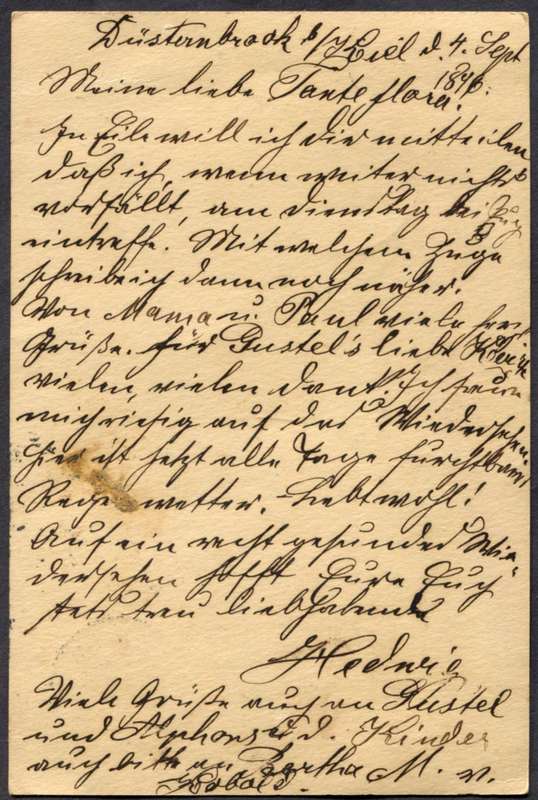 Düsternbrook b/Kiel d. 4. Sept
1896.
Meine liebe Tante Flora!
In Eile will ich dir mitteilen
daß ich, wenn weiter nichts
vorfällt, am Dienstag bei
eintreffe. Mit welchem Zuge
schreibe ich dann noch näher.
Von Mama u. Paul viele herzl.
Grüße. Für Gustel's liebe
vielen, vielen Dank! Ich freue
mich riesig auf das Wiedersehen.
Hier ist jetzt alle Tage furchtbares
Regenwetter. Lebt wohl!
Auf ein recht gesundes Wie-
dersehen hofft Eure Euch
stets treu liebhabende
Hedwig
Viele Grüße auch an Gustel
und Alphons u. d. Kinder
auch bitte an Bertha M. v.